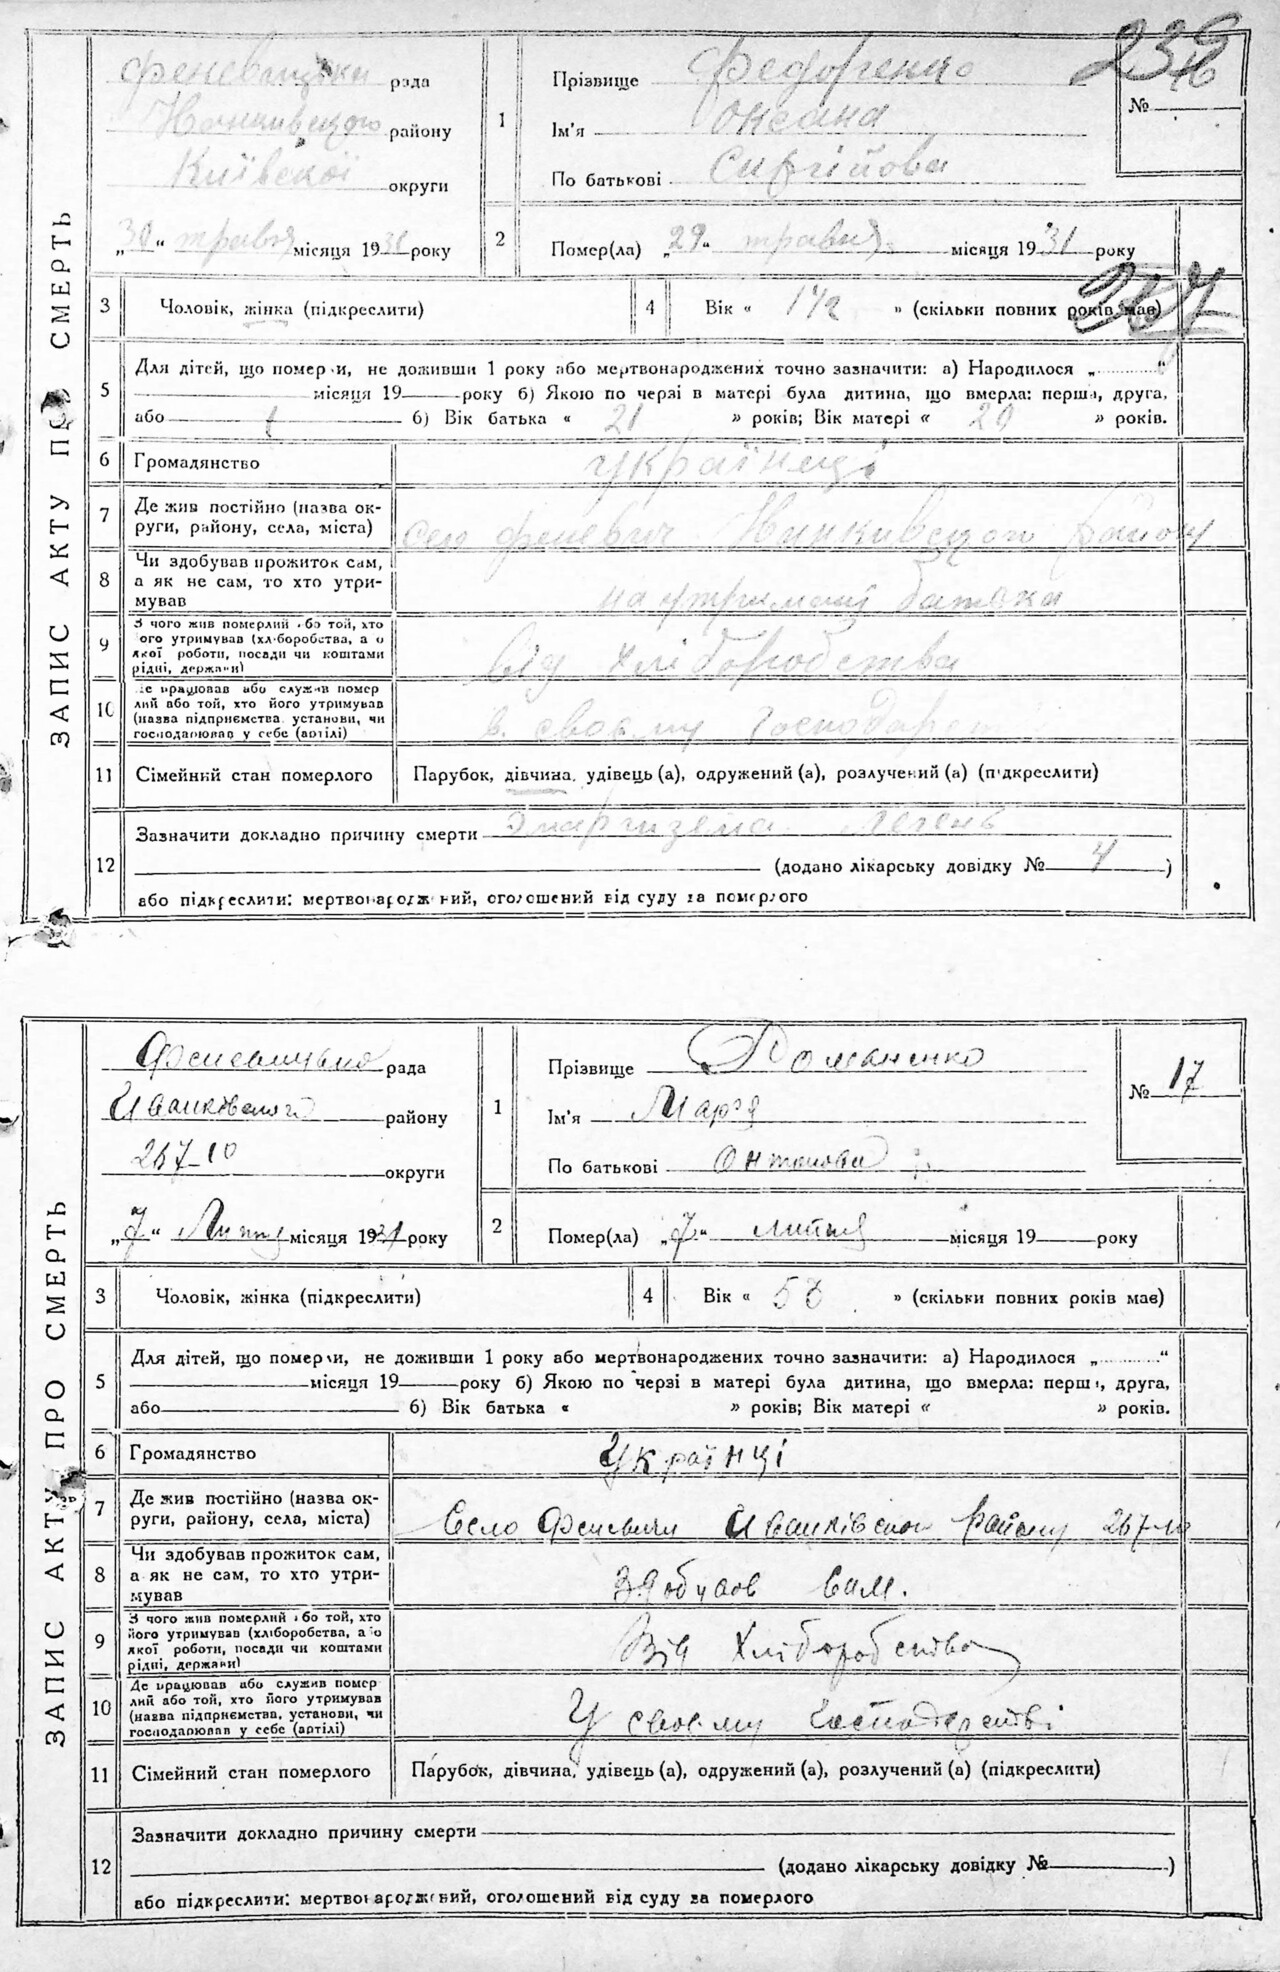 ЗАПИС АКТУ ПРО СМЕРТЬ
239
рада
району
Київскої округи
„30“ травня місяця 1931 року
1
Прізвище Федоренко
Ім'я Оксана
По батькові Сиргійова
№ 16
2
Помер(ла) „29“ травня місяця 1931 року
3 Чоловік, жінка (підкреслити)
4 Вік « 1 1/2 » (скільки повних років має)
257
5 Для дітей, що померли, не доживши 1 року або мертвонароджених точно зазначити: а) Народилося „ “
місяця 19 року б) Якою по черзі в матері була дитина, що вмерла: перша, друга,
або 1 б) Вік батька « 21 » років; Вік матері « 20 » років.
6 Громадянство українці
7 Де жив постійно (назва ок-
руги, району, села, міста) село Феневич району
8 Чи здобував прожиток сам,
а як не сам, то хто утри-
мував на утриманці батька
9 З чого жив померлий або той, хто
його утримував (хліборобства, або
якої роботи, посади чи коштами
рідні, держави) від хліборобства
10 Де працював або служив помер
лий або той, хто його утримував
(назва підприємства, установи, чи
господарював у себе (артілі) в своєму
11 Сімейний стан померлого Парубок, дівчина, удівець (а), одружений (а), розлучений (а) (підкреслити)
12 Зазначити докладно причину смерти легень
(додано лікарську довідку № 4 )
або підкреслити: мертвонароджений, оголошений від суду за померлого
ЗАПИС АКТУ ПРО СМЕРТЬ
рада
району
267-10 округи
„7“ Липня місяця 1931 року
1
Прізвище Романенко
Ім'я Марія
По батькові Онтонова
№ 17
2
Помер(ла) „7“ липня місяця 19 року
3 Чоловік, жінка (підкреслити)
4 Вік « 56 » (скільки повних років має)
5 Для дітей, що померли, не доживши 1 року або мертвонароджених точно зазначити: а) Народилося „ “
місяця 19 року б) Якою по черзі в матері була дитина, що вмерла: перша, друга,
або б) Вік батька « » років; Вік матері « » років.
6 Громадянство Українці
7 Де жив постійно (назва ок-
руги, району, села, міста) Село Феневичи району 267-10
8 Чи здобував прожиток сам,
а як не сам, то хто утри-
мував Здобував сам.
9 З чого жив померлий або той, хто
його утримував (хліборобства, або
якої роботи, посади чи коштами
рідні, держави) Від Хліборобства
10 Де працював або служив помер
лий або той, хто його утримував
(назва підприємства, установи, чи
господарював у себе (артілі) У своєму господарстві
11 Сімейний стан померлого Парубок, дівчина, удівець (а), одружений (а), розлучений (а) (підкреслити)
12 Зазначити докладно причину смерти
(додано лікарську довідку № )
або підкреслити: мертвонароджений, оголошений від суду за померлого